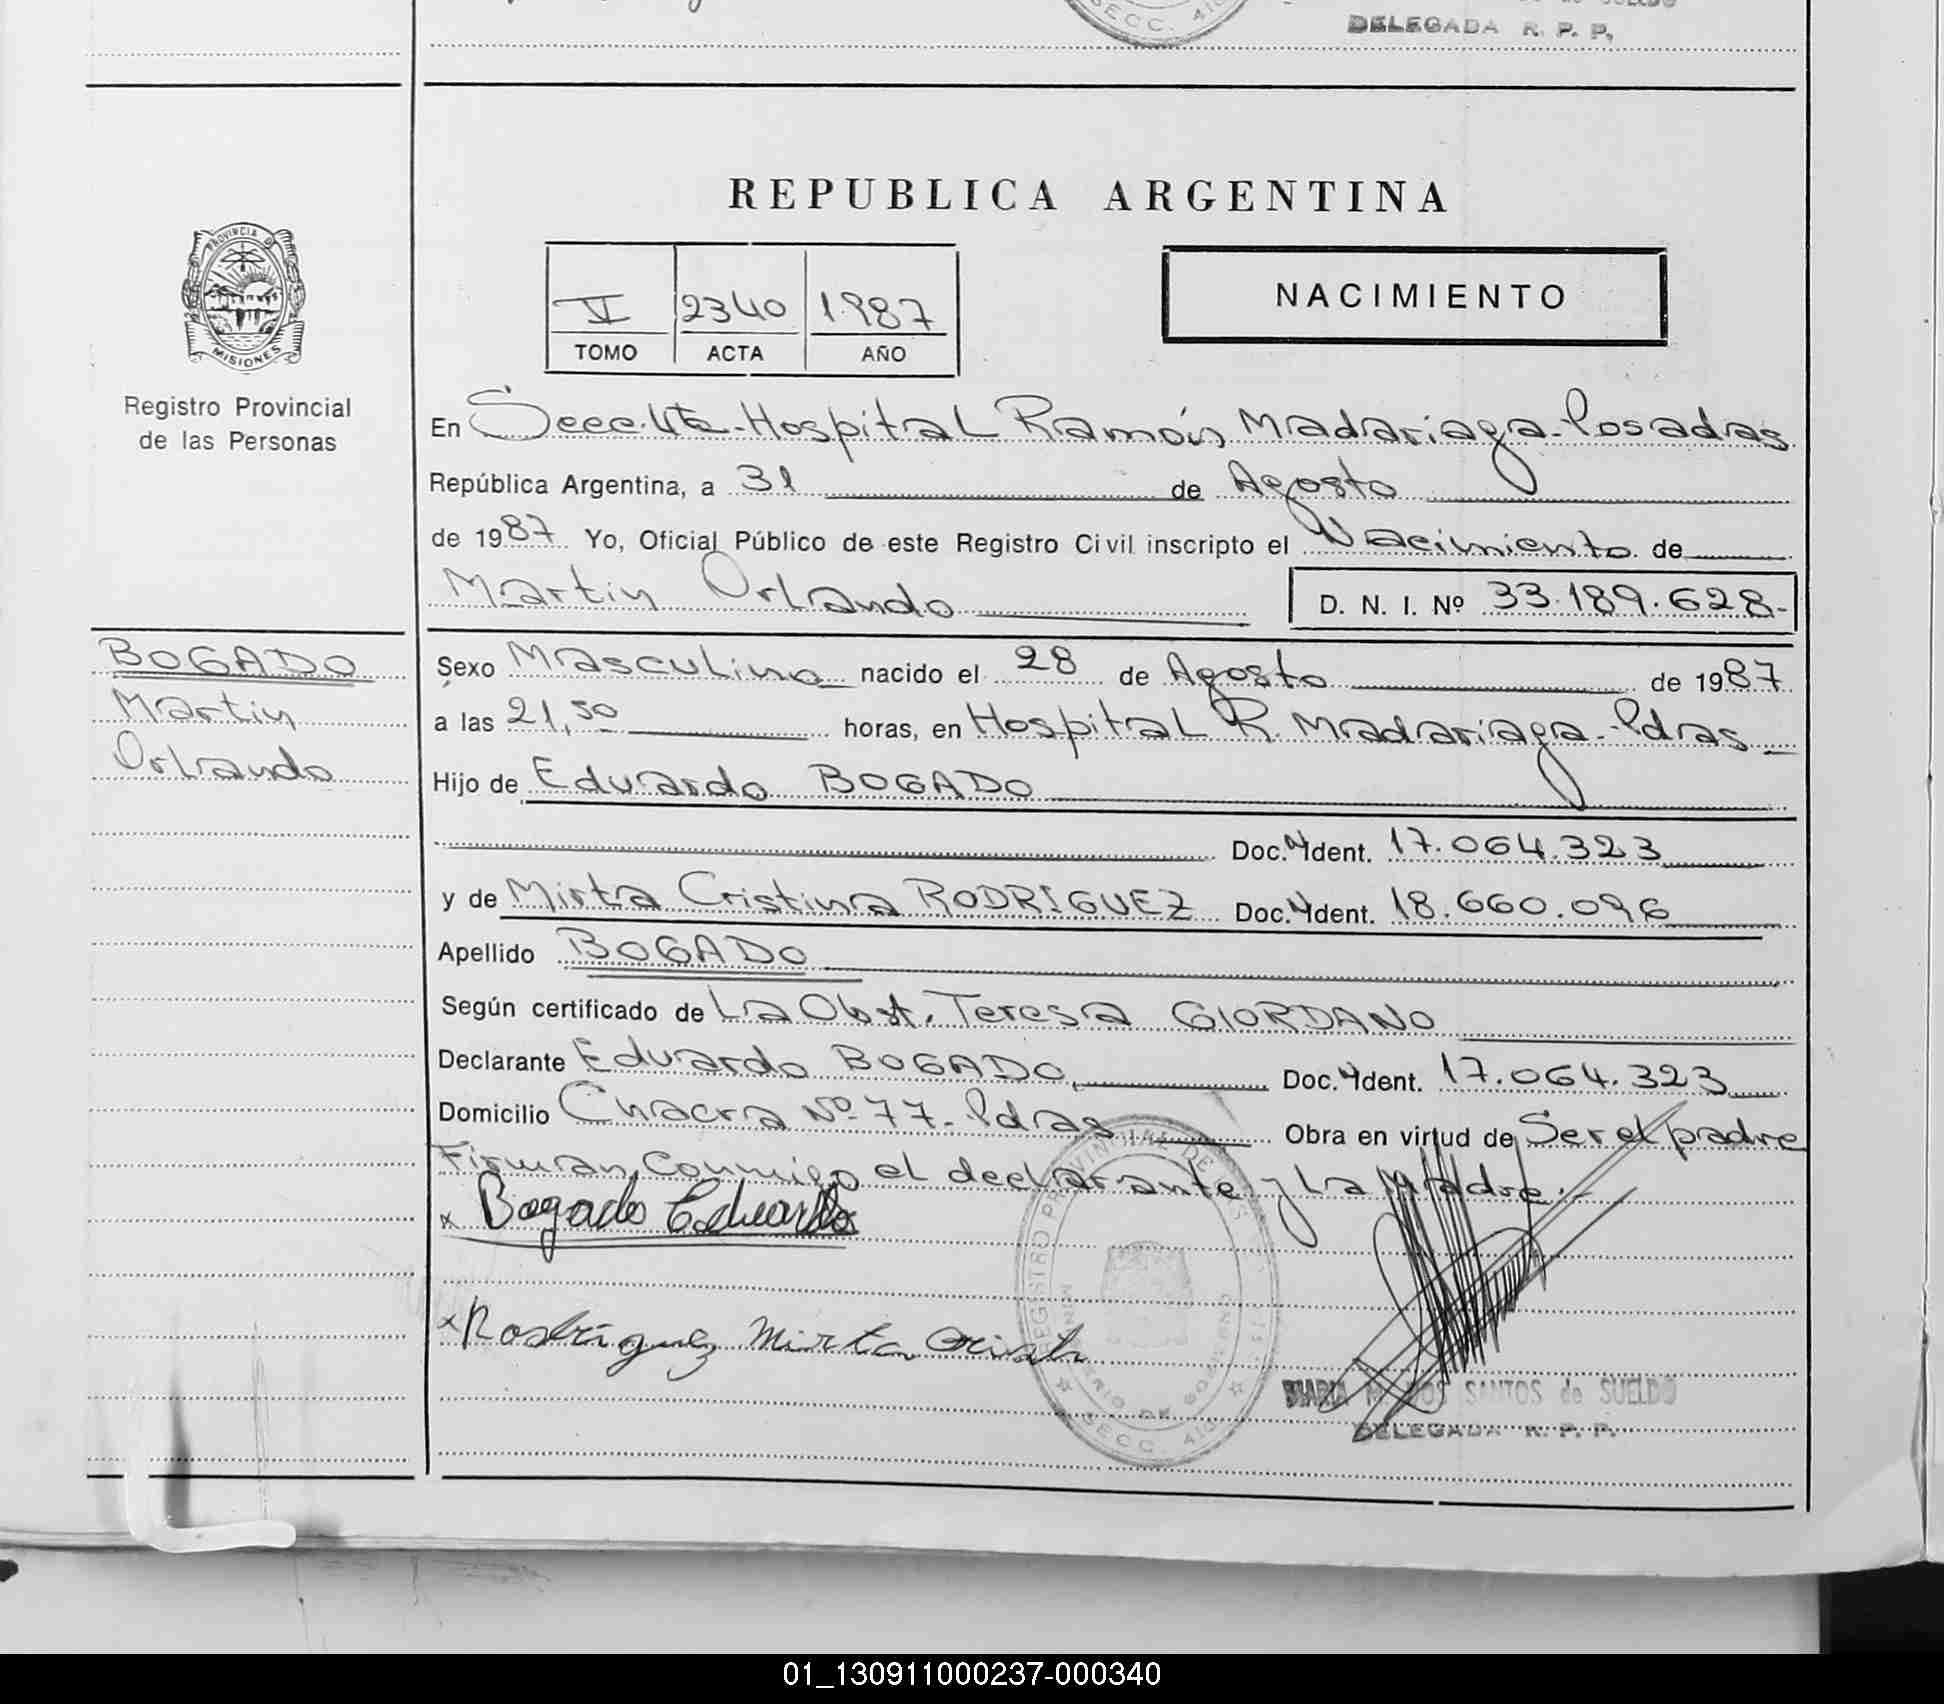 DELEGADA R. P. P.
REPUBLICA ARGENTINA
PROVINCIA DE MISIONES
V 2340 1987
TOMO ACTA AÑO
NACIMIENTO
Registro Provincial
de las Personas
En Secc. 4ta - Hospital Ramón Madariaga - Posadas
República Argentina, a 31 de Agosto
de 1987 Yo, Oficial Público de este Registro Civil inscripto el Nacimiento de
Martin Orlando D. N. I. Nº 33.189.628-
BOGADO
Martin
Orlando
Sexo Masculino nacido el 28 de Agosto de 1987
a las 21,50 horas, en Hospital R. Madariaga - Pdas
Hijo de Eduardo BOGADO
Doc. Ident. 17.064.323
y de Mirta Cristina RODRIGUEZ Doc. Ident. 18.660.096
Apellido BOGADO
Según certificado de La Obst. Teresa GIORDANO
Declarante Eduardo BOGADO Doc. Ident. 17.064.323
Domicilio Chacra Nº 77 - Pdas Obra en virtud de Ser el padre
Firman Conmigo el declarante y La Madre.-
x Bogado Eduardo
x Rodríguez Mirta
REGISTRO PROVINCIAL DE LAS
MINISTERIO DE GOBIERNO
SECC. 4ta
MARIA M. DOS SANTOS de SUELDO
DELEGADA R. P. P.
01_130911000237-000340